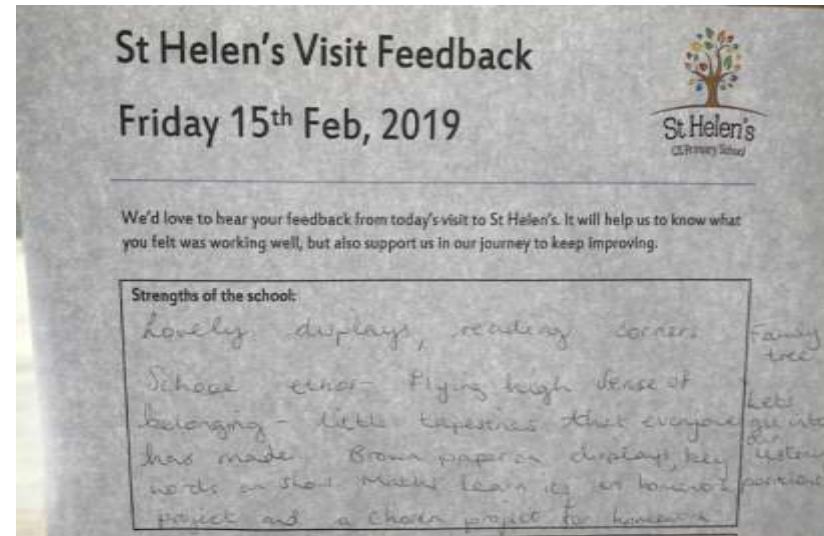 St Helen's Visit Feedback
Friday 15th Feb, 2019
St Helen's
CE Primary School
We'd love to hear your feedback from today's visit to St Helen's. It will help us to know what
you felt was working well, but also support us in our journey to keep improving.
Strengths of the school:
Lovely displays, reading corners
School ethos - Flying high Sense of
belonging - little tapestries that everyone
has made. Brown paper on displays, key
words on show. Maths
project and a chosen project for homework
Family
tree
Lets
go into
our
listening
positions